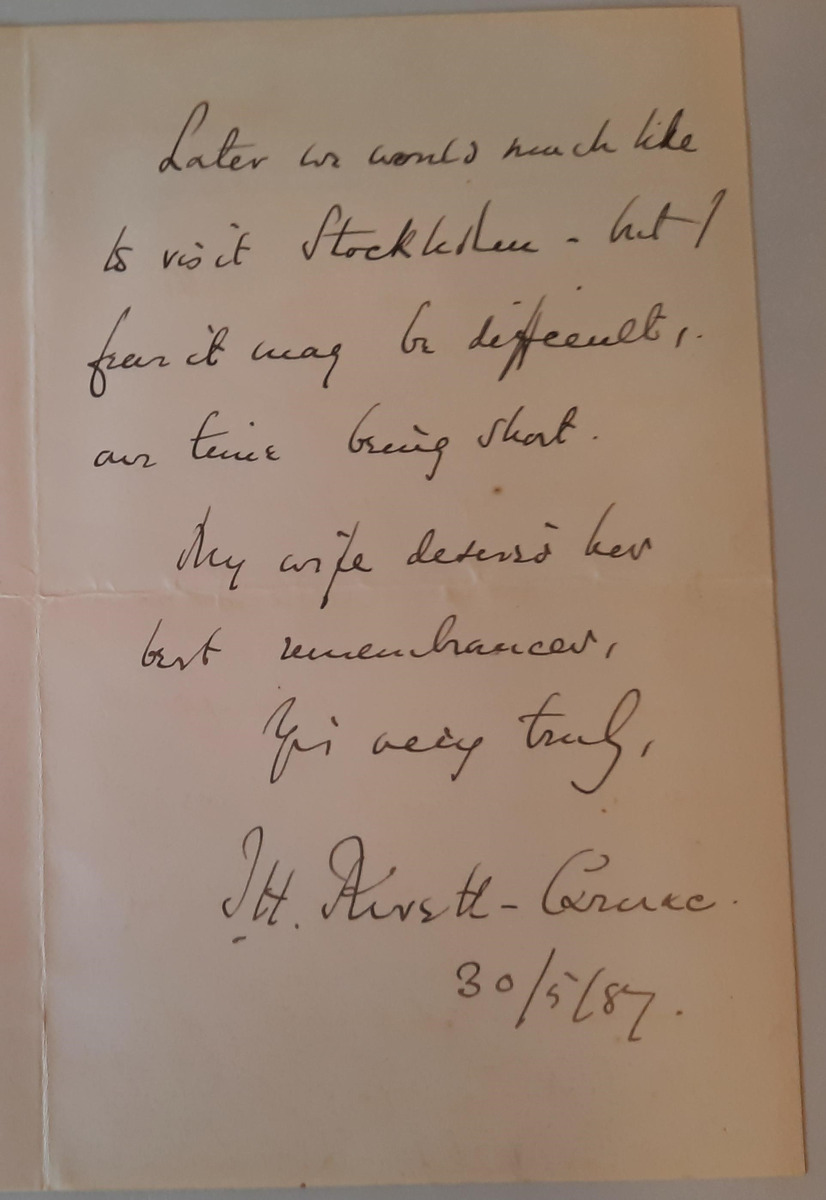 Later we would much like
to visit Stockholm - but I
fear it may be difficult,.
our time being short.
My wife desires her
best remembrances,
Yrs very truly,
J.H. Rivett-Carnac.
30/5/87.